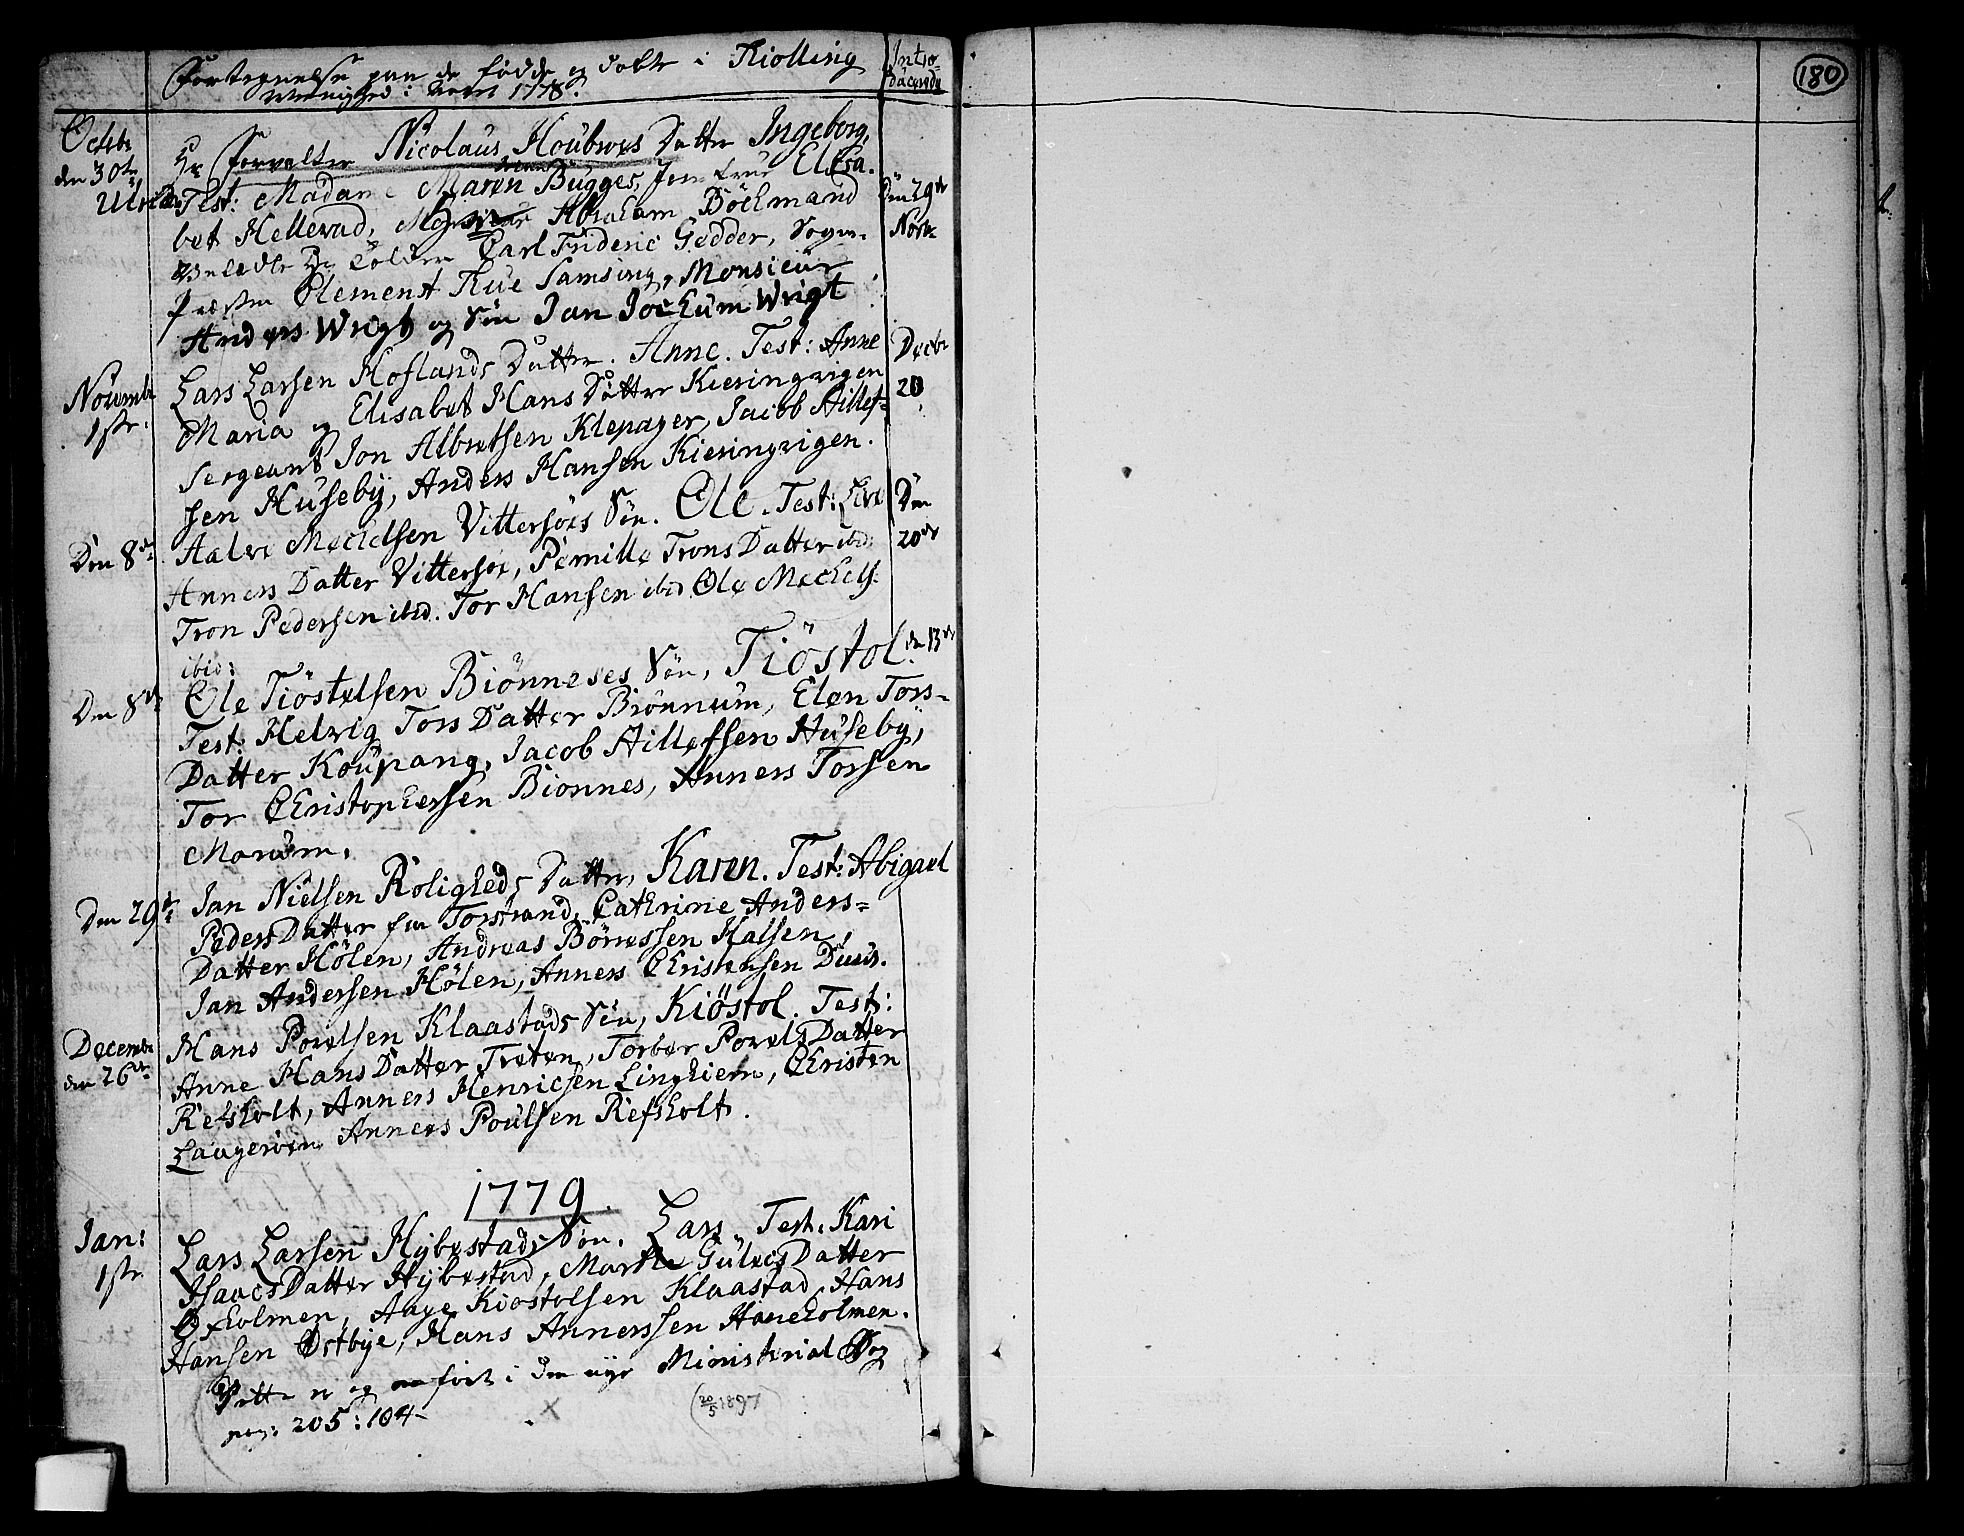 Fortegnelse paa de fødde og døbte i Kiølling
Menighed i Aaret 1778.
Introducerede
180
Octobr
den 30te
Hr Forvalter Nicolaus Houbroes Datter Ingeborg,
Test: Madame Maren Bugges, Jomfrue Elisa-
den 29de
Novr
bet Hellerud, Monsieur Abraham Böckmand
Carl Frideric Gedder, Sogne-
Præsten Clement Rue Samsing, Monsieur
Anders Wrigt og Søn Jan Jochum Wrigt
Novembr
1ste.
Lars Larsen Hoflands Datter. Anne. Test: Anne
Decbr
20
Maria og Elisabet Hans Datter Kieringvigen
Sergeant Jon Albretsen Klepager, Jacob Hillef-
sen Huseby, Anders Hansen Kieringvigen.
Den 8de
Halvor Mechelsen Vittersøes Søn. Ole. Test: Live
Den
20de
Anners Datter Vittersøe, Pernille Trons Datter ibid:
Tron Pedersen ibid. Tor Hansen ibid. Ole Mechels:
ibid:
Den 8de
Ole Tiöstelsen Biönneses Søn, Tiöstol.
den 13de
Test: Helvig Tors Datter Biönnum, Elen Tors-
Datter Koupang, Jacob Hillefsen Huseby,
Tor Christophersen Bionnes, Anners Torsen
Marum.
Den 29de
Jan Nielsen Roligheds Datter, Karen. Test: Abigael
Peders Datter fra Torstrand, Cathrine Anders-
Datter Hölen, Andreas Börressen Kalsen,
Jan Andersen Hölen, Anners Christensen Duus.
Decembr
den 26de
Hans Povelsen Klaastads Søn, Kiöstol. Test:
Anne Hans Datter Treten, Torber Povels Datter
Refsholt, Anners Henricsen Linghiem, Christen
Laugerøen Anners Poulsen Refsholt.
1779.
Jan:
1ste
Lars Larsen Hybestads Søn. Lars. Test: Kari
Isaacs Datter Hybestad, Marthe Gulecs Datter
Oxholmen, Aage Kiostolsen Klaastad, Hans
Hansen Østbye, Hans Annerssen Haneholmen.
Dette er ogført i den nye Ministerial Bog
pag: 205:104-
(20/5 1897)